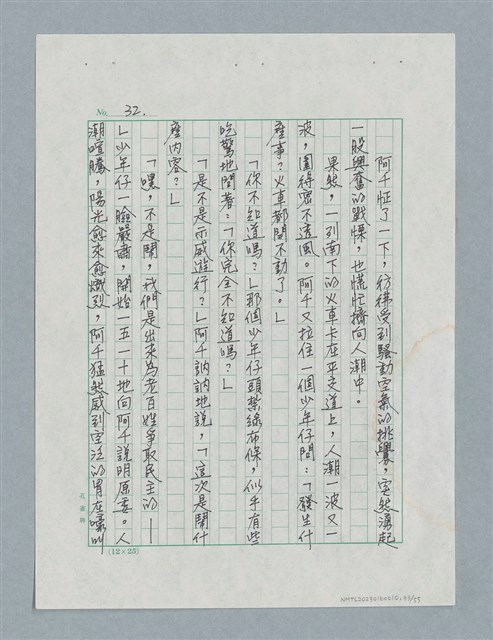 No. 32.
阿千怔了一下，彷彿受到騷動空氣的挑釁，突然湧起
一股興奮的戰慄，也慌忙擠向人潮中。
果然，一列南下的火車卡在平交道上，人潮一波又一
波，圍得密不透風。阿千又拉住一個少年仔問：「發生什
麼事？火車都開不動了。」
「你不知道嗎？」那個少年仔頭紮綠布條，似乎有些
吃驚地問著：「你完全不知道嗎？」
「是不是示威遊行？」阿千訥訥地說，「這次是鬧什
麼內容？」
「嘿，不是鬧，我們是出來為老百姓爭取民主的——
」少年仔一臉嚴肅，開始一五一十地向阿千說明原委。人
潮喧騰，陽光愈來愈熾烈，阿千猛然感到空泛的胃在嚎叫
(12×25)